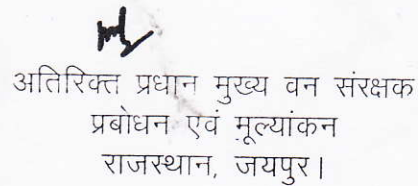 अतिरिक्त प्रधान मुख्य वन संरक्षक
प्रबोधन एवं मूल्यांकन
राजस्थान, जयपुर।